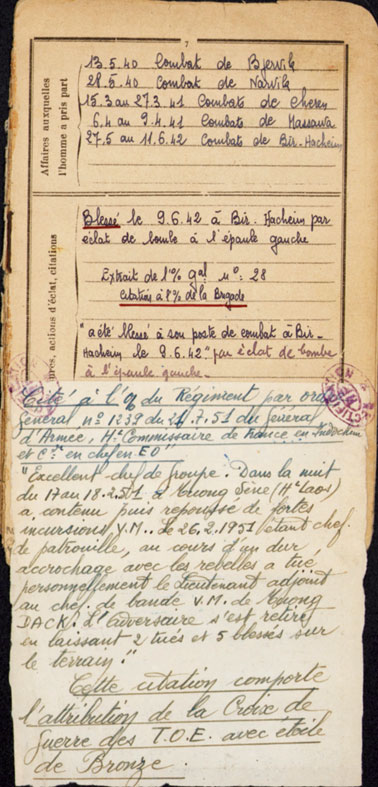 7
Affaires auxquelles
l'homme a pris part
13.5.40 Combat de Bjervik
28.5.40 Combat de Narvik
15.3 au 27.3.41 Combats de Cheren
6.4 au 9.4.41 Combats de Massawa
27.5 au 11.6.42 Combats de Bir-Hacheim
ures, actions d'éclat, citations
Blessé le 9.6.42 à Bir-Hacheim par
éclat de bombe à l'épaule gauche
Extrait de l' gal nº: 28
Citation à l' de la Brigade
"a été blessé à son poste de combat à Bir-
Hacheim le 9.6.42" par éclat de bombe
à l'épaule gauche.
Cité à l' du Régiment par ord
Général nº 1239 du 7.51 du Général
d'Armée, Ht Cre Commissaire de France en Indochine
et Cᵗ en chef en EO"
"Excellent chef de groupe. Dans la nuit
du 17 au 18.2.51 à Muong Sène (Ht Laos)
a contenu puis repoussé de fortes
incursions V.M.. Le 26.2.1951 étant chef
de patrouille, au cours d'un dur
accrochage avec les rebelles a tué
personnellement le Lieutenant adjoint
au chef de bande V.M. de Muong
DACK. L'adversaire s'est retiré
en laissant 2 tués et 5 blessés sur
le terrain."
Cette citation comporte
l'attribution de la Croix de
Guerre des T.O.E. avec étoile
de Bronze.